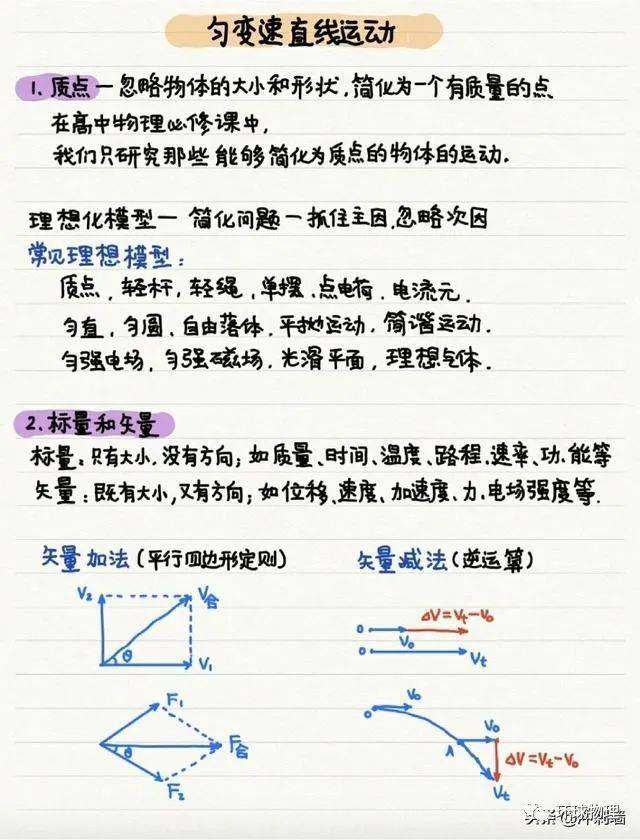 匀变速直线运动
1. 质点—忽略物体的大小和形状,简化为一个有质量的点
在高中物理必修课中,
我们只研究那些能够简化为质点的物体的运动.
理想化模型— 简化问题—抓住主因,忽略次因
常见理想模型:
质点,轻杆,轻绳,单摆,点电荷,电流元.
匀直,匀圆,自由落体,平抛运动,简谐运动.
匀强电场,匀强磁场,光滑平面,理想气体.
2. 标量和矢量
标量:只有大小,没有方向;如质量、时间、温度、路程、速率、功、能等
矢量:既有大小,又有方向;如位移、速度、加速度、力、电场强度等.
矢量加法(平行四边形定则)
V₂ V合
θ V₁
F₁
θ F合
F₂
矢量减法(逆运算)
ΔV=Vt-V₀
0 V₀
0 Vt
0 V₀
A V₀
ΔV=Vt-V₀
Vt
环球物理
头条@冲刺猫